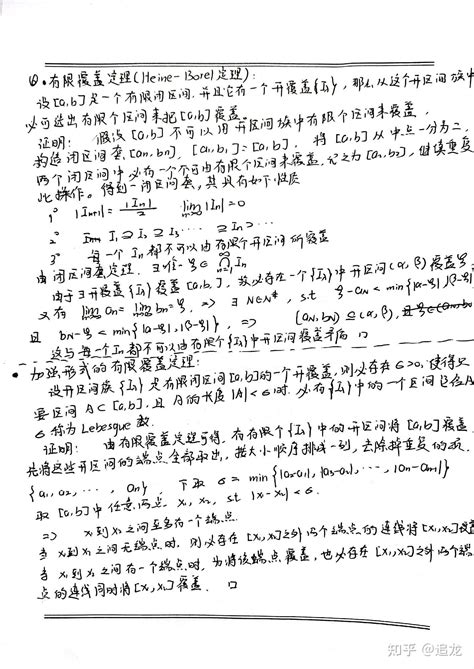 ⑥.有限覆盖定理(Heine-Borel定理):
设[a,b]是一个有限闭区间,并且它有一个开覆盖{Iλ},那么从这个开区间族中
必可选出有限个区间来把[a,b]覆盖。
证明: 假设[a,b]不可以用开区间族中有限个区间来覆盖,
构造闭区间套[an,bn], [a1,b1]=[a,b]. 将[a,b]从中点一分为二,
两个闭区间中必有一个不可由有限个区间来覆盖,记之为[a2,b2],继续重复
此操作。得到一闭区间套,其具有如下性质
1° |In+1| = |In|/2 lim|In|=0
2° I1⊇I2⊇I3 … ⊇In⊇…
3° 每一个In都不可以由有限个开区间所覆盖
由闭区间套定理,∃唯一ξ∈∩In
由于∃开覆盖{Iλ}覆盖[a,b],故必存在一个{Iλ}中开区间(α,β)覆盖ξ.
又有 lim an = lim bn = ξ, => ∃N∈N*, s.t ξ-aN<min{|α-ξ|,|β-ξ|}
且 bN-ξ<min{|α-ξ|,|β-ξ|}, => [aN,bN]⊆(α,β),
这与每一个In都不可以由有限个{Iλ}中开区间覆盖矛盾 □
• 加强形式的有限覆盖定理:
设开区间族{Iλ}是有限闭区间[a,b]的一个开覆盖,则必存在σ>0,使得只
要区间A⊂[a,b],且A的长度|A|<σ时,必有{Iλ}中的一个区间包含A
σ称为Lebesgue数.
证明: 由有限覆盖定理可得,存有限个{Iλ}中的开区间将[a,b]覆盖.
先将这些开区间的端点全部取出,按大小顺序排成一列,去除掉重复的点.
{a1,a2,…,an}, 下取σ=min{|a2-a1|,|a3-a2|,…,|an-an-1|}
取[a,b]中任意两点x1,x2, st |x1-x2|<σ.
=> x1到x2之间至多有一个端点.
当x1到x2之间无端点时,则必存在[x1,x2]之外两个端点的连线将[x1,x2]覆盖
当x1到x2之间有一个端点时,为将该端点覆盖,也必存在[x1,x2]之外两个端
点的连线同时将[x1,x2]覆盖. □
知乎 @追龙